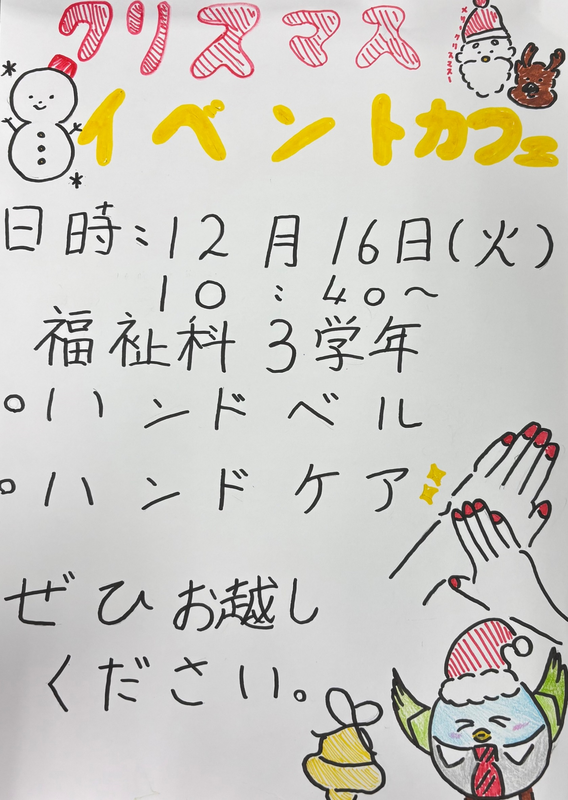 クリスマス
メリークリスマスー
イベントカフェ
日時:12月16日(火)
10:40~
福祉科3学年
○ハンドベル
○ハンドケア
ぜひお越し
ください。